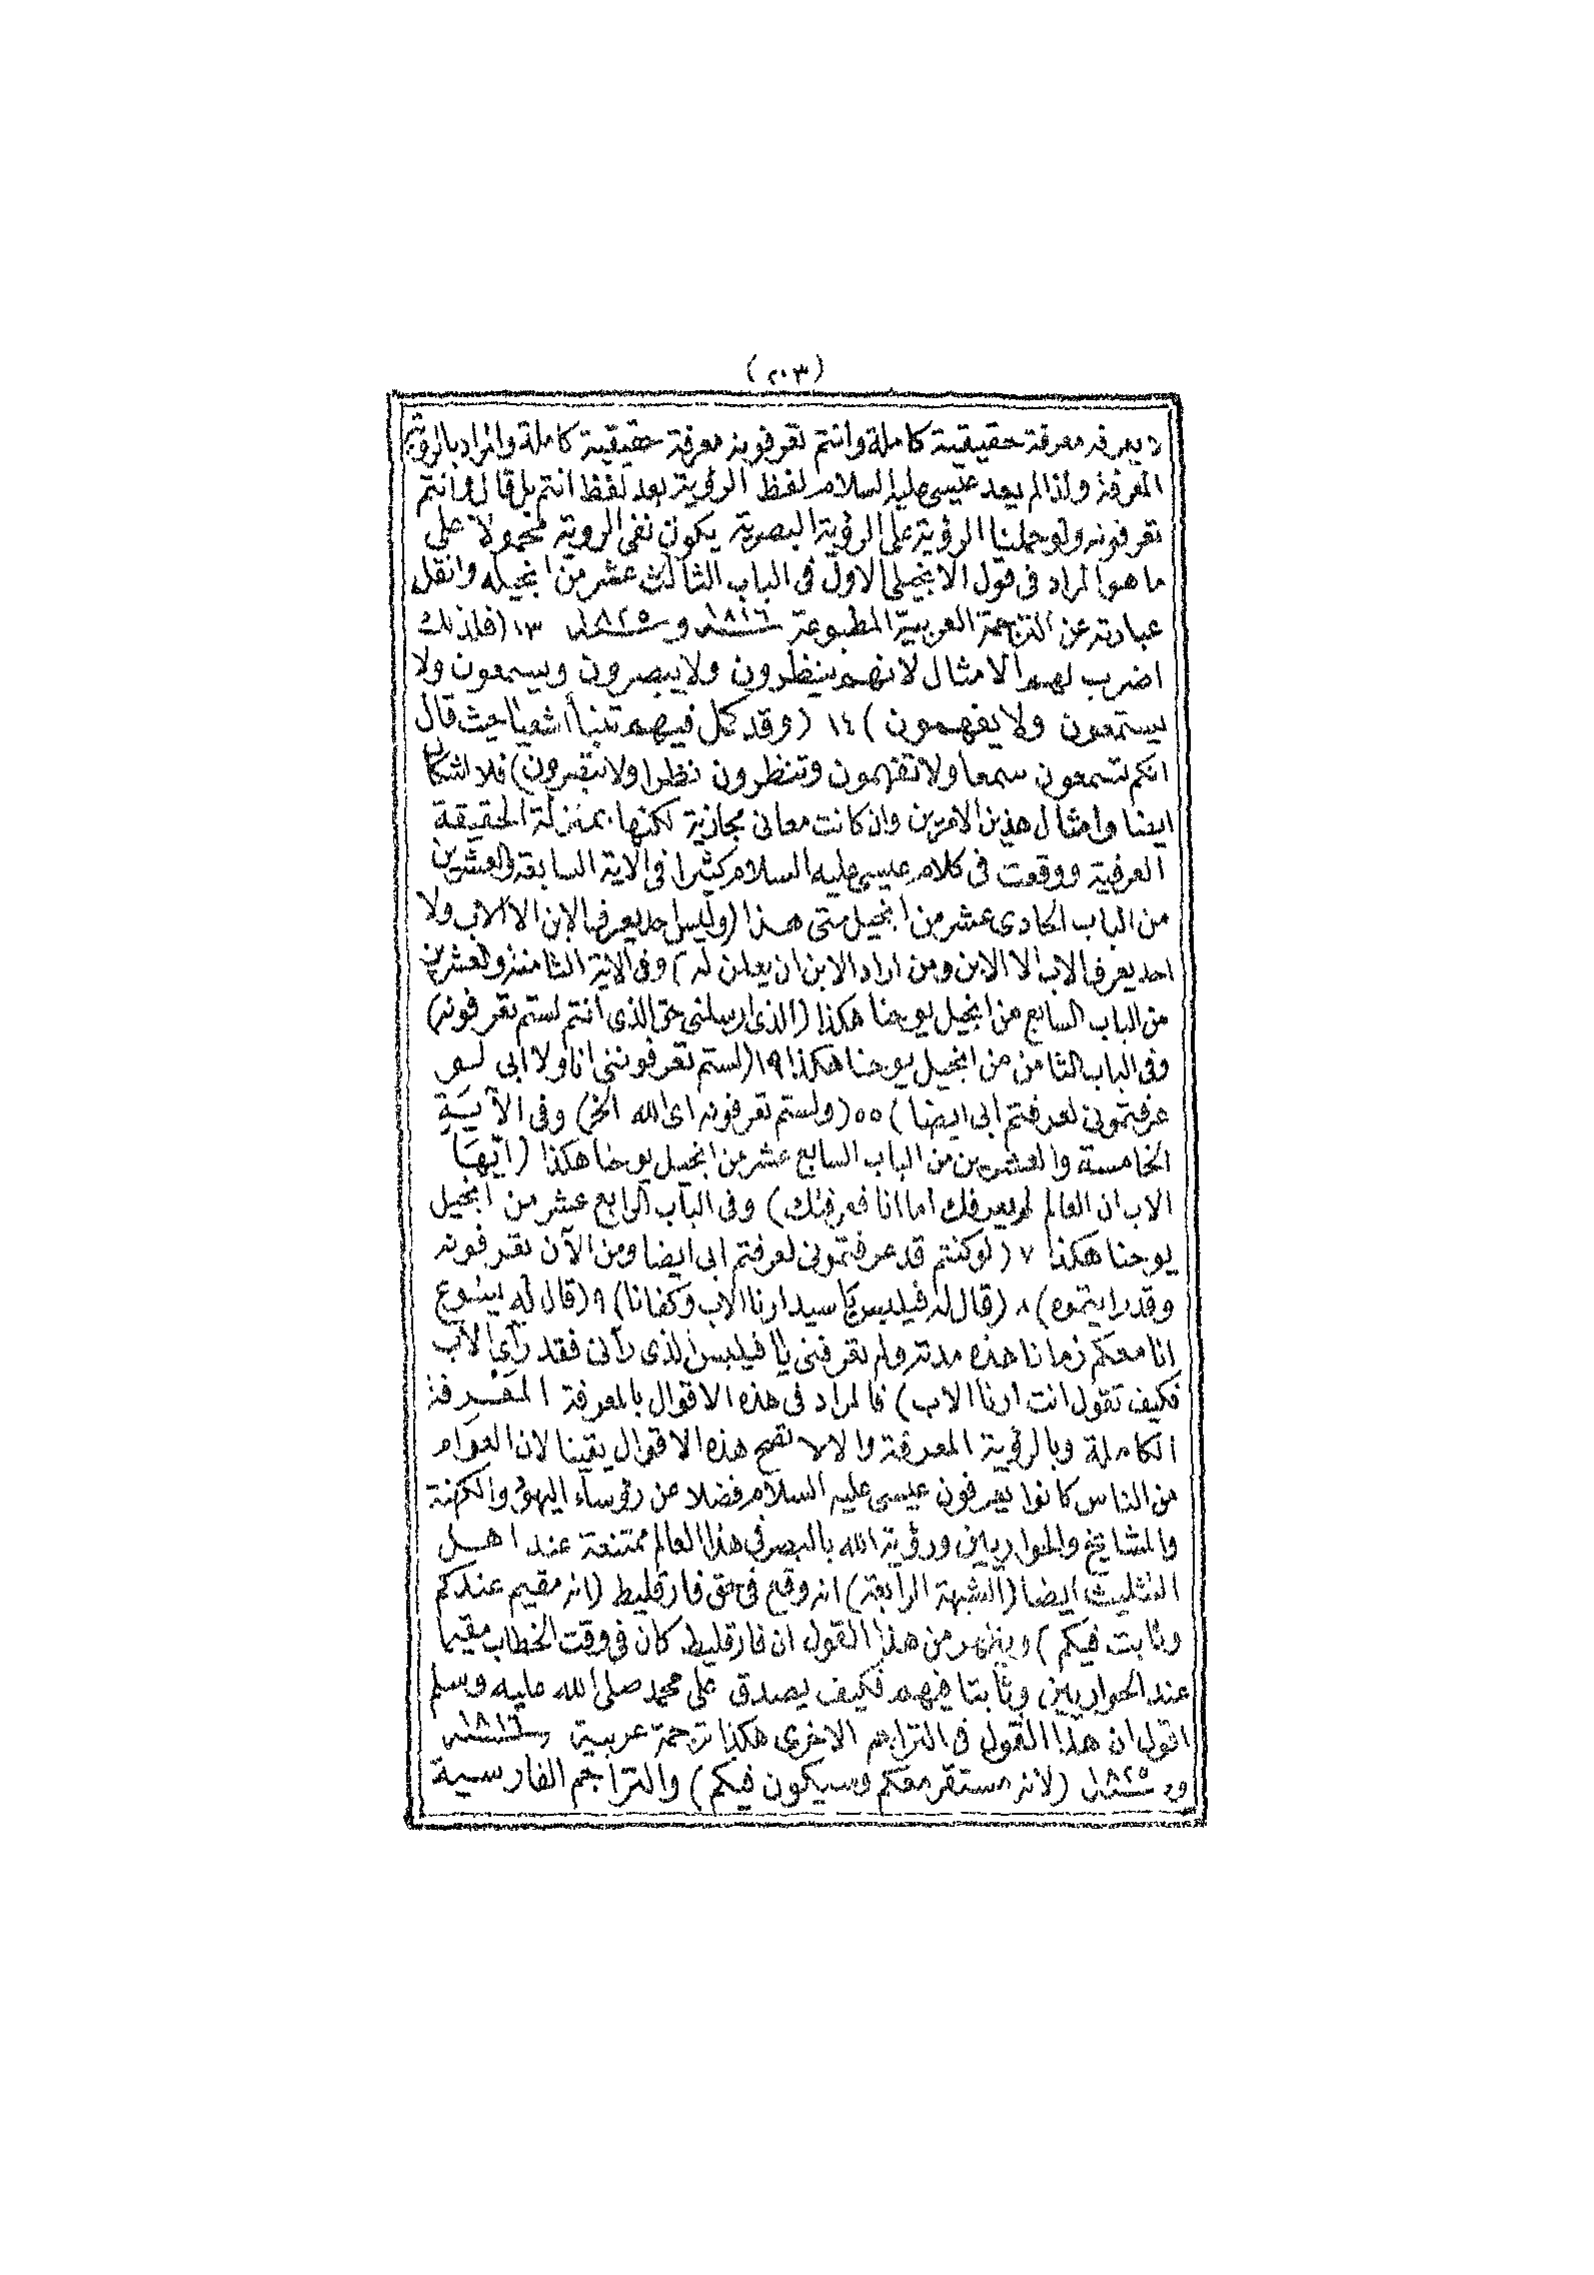 (٢٠٣)
يعرفه معرفة حقيقية كاملة وانتم تعرفونه معرفة حقيقية كاملة والمراد بالرؤية
المعرفة ولذا لم يعد عيسى عليه السلام لفظ الرؤية بعد لفظ انتم بل قال وانتم
تعرفونه ولو حملنا الرؤية على الرؤية البصرية يكون نفى الروية محمولا على
ما هو المراد فى قول الانجيلى الاول فى الباب الثالث عشر من انجيله وانقل
عبارته عن الترجمة العربية المطبوعة سنة ١٨١٦ وسنة ١٨٢٥ ١٣ (فلذلك
اضرب لهم الامثال لانهم ينظرون ولا يبصرون ويسمعون ولا
يستمعون ولا يفهمون) ١٤ (وقد كمل فيهم تنبأ أشعيا حيث قال
انكم تسمعون سمعا ولا تفهمون وتنظرون نظرا ولا تبصرون) فلا اشكال
ايضا وامثال هذين الامرين وان كانت معانى مجازية لكنها بمنزلة الحقيقة
العرفية ووقعت فى كلام عيسى عليه السلام كثيرا فى الاية السابقة والعشرين
من الباب الحادى عشر من انجيل متى هذا (وليس احد يعرف الابن الا الاب ولا
احد يعرف الاب الا الابن ومن اراد الابن ان يعلن له) وفى الاية الثامنة والعشرين
من الباب السابع من انجيل يوحنا هكذا (الذى ارسلنى حق الذى انتم لستم تعرفونه)
وفى الباب الثامن من انجيل يوحنا هكذا ١٩ (لستم تعرفوننى انا ولا ابى لو
عرفتمونى لعرفتم ابى ايضا) ٥٥ (ولستم تعرفونه اى الله الخ) وفى الآية
الخامسة والعشرين من الباب السابع عشر من انجيل يوحنا هكذا (ايها
الاب ان العالم لم يعرفك اما انا فعرفتك) وفى الباب الرابع عشر من انجيل
يوحنا هكذا ٧ (لو كنتم قد عرفتمونى لعرفتم ابى ايضا ومن الآن تعرفونه
وقد رايتموه) ٨ (قال له فيلبس يا سيد ارنا الاب وكفانا) ٩ (قال له يسوع
انا معكم زمانا هذه مدته ولم تعرفنى يا فيلبس الذى رآنى فقد رأى الاب
فكيف تقول انت ارنا الاب) فالمراد فى هذه الاقوال بالمعرفة المعرفة
الكاملة وبالرؤية المعرفة والا لا تصح هذه الاقوال يقينا لان العوام
من الناس كانوا يعرفون عيسى عليه السلام فضلا عن رؤساء اليهود والكهنة
والمشايخ والحواريين ورؤية الله بالبصر فى هذا العالم ممتنعة عند اهل
التثليث ايضا (الشبهة الرابعة) انه وقع فى حق فارقليط (انه مقيم عندكم
وثابت فيكم) ويظهر من هذا القول ان فارقليط كان فى وقت الخطاب مقيما
عند الحواريين وثابتا فيهم فكيف يصدق على محمد صلى الله عليه وسلم
اقول ان هذا القول فى التراجم الاخرى هكذا ترجمة عربية سنة ١٨١٦
وسنة ١٨٢٥ (لانه مستقر معكم وسيكون فيكم) والتراجم الفارسية